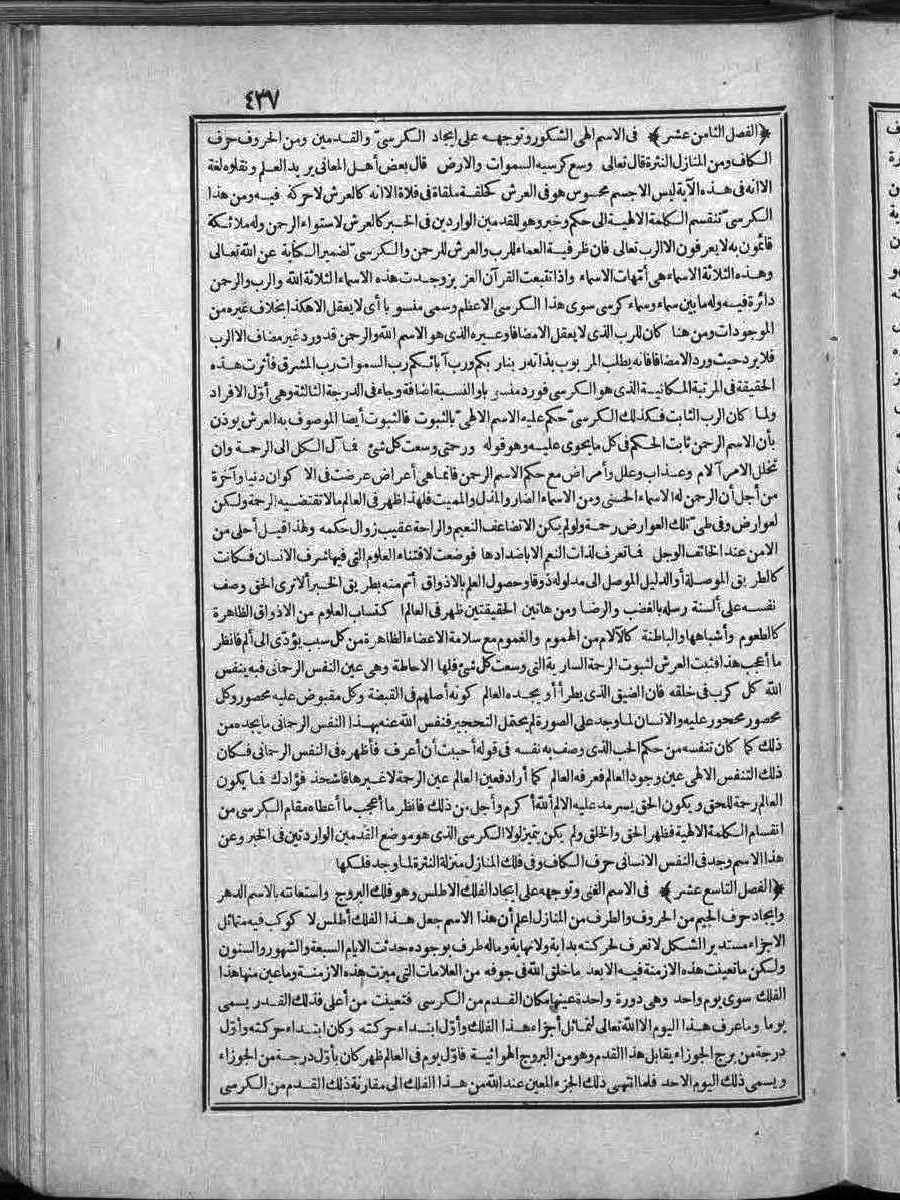 ٤٣٧
﴿الفصل الثامن عشر﴾ فى الاسم الهى الشكور وتوجهه على ايجاد الكرسىّ والقدمين ومن الحروف حرف
الكاف ومن المنازل النثرة قال تعالى وسع كرسيه السموات والارض قال بعض أهل المعانى يريد العلم ونقلوه لغة
الاانه فى هذه الآية ليس الاجسم محسوس هو فى العرش كحلقة ملقاة فى فلاة الاانه كالعرش لاحركة فيه ومن هذا
الكرسىّ تنقسم الكلمة الالهية الى حكم وخبر وهو للقدمين الواردين فى الخبر كالعرش لاستواء الرحمن وله ملائكة
قائمون به لايعرفون الاالرب تعالى فان ظرفية العماء للرب والعرش للرحمن والكرسىّ لضمير الكناية عن الله تعالى
وهذه الثلاثة الاسماء هى أمّهات الاسماء واذا تتبعت القرآن العزيز وجدت هذه الاسماء الثلاثة الله والرب والرحمن
دائرة فيه وله مابين سماء وسماء كرسى سوى هذا الكرسى الاعظم وسمى منسوبا أى لايعقل الاهكذا بخلاف غيره من
الموجودات ومن هنا كان للرب الذى لايعقل الامضافا وغيره الذى هو الاسم الله والرحمن قد ورد غير مضاف الاالرب
فلا يرد حيث ورد الامضافا فانه يطلب المربوب بذاته ربنا ربكم ورب آبائكم رب السموات رب المشرق فأثرت هذه
الحقيقة فى المرتبة المكانية الذى هو الكرسى فورد منسوبا والنسبة اضافة وجاء فى الدرجة الثالثة وهى أوّل الافراد
ولما كان الرب الثابت فكذلك الكرسىّ حكم عليه الاسم الالهىّ بالثبوت فالثبوت أيضا الموصوف به العرش يوذن
بأن الاسم الرحمن ثابت الحكم فى كل مايحوى عليه وهو قوله ورحمتى وسعت كل شئ فما آل الكل الى الرحمة وان
تخلل الامر آلام وعذاب وعلل وأمراض مع حكم الاسم الرحمن فانما هى أعراض عرضت فى الاكوان دنيا وآخرة
من أجل أن الرحمن له الاسماء الحسنى ومن الاسماء الضار والمذل والمميت فلهذا ظهر فى العالم مالاتقتضيه الرحمة ولكن
لعوارض وفى طىّ تلك العوارض رحمة ولولم يكن الاتضاعف النعيم والراحة عقيب زوال حكمه ولهذا قيل أحلى من
الامن عند الخائف الوجل فما تعرف لذات النعم الاباضدادها فوضعت لاقتناء العلوم التى فيها شرف الانسان فكانت
كالطريق الموصلة أو الدليل الموصل الى مدلوله ذوقا وحصول العلم بالاذواق أتم منه بطريق الخبر ألاترى الحق وصف
نفسه على ألسنة رسله بالغضب والرضا ومن هاتين الحقيقتين ظهر فى العالم اكتساب العلوم من الاذواق الظاهرة
كالطعوم وأشباهها والباطنة كالآلام من الهموم والغموم مع سلامة الاعضاء الظاهرة من كل سبب يؤدّى الى ألم فانظر
ما أعجب هذا فثبت العرش لثبوت الرحمة السارية التى وسعت كل شئ فلها الاحاطة وهى عين النفس الرحمانى فبه ينفس
الله كل كرب فى خلقه فان الضيق الذى يطرأ أو يجده العالم كونه أصلهم فى القبضة وكل مقبوض عليه محصور وكل
محصور محجور عليه والانسان لما وجد على الصورة لم يحتمل التحجير فنفس الله عنه بهذا النفس الرحمانى مايجده من
ذلك كما كان تنفسه من حكم الحب الذى وصف به نفسه فى قوله أحببت أن أعرف فأظهره فى النفس الرحمانى فكان
ذلك التنفس الالهى عين وجود العالم فعرفه العالم كما أراد فعين العالم عين الرحمة لاغيرها فاشحذ فؤادك فما يكون
العالم رحمة للحق ويكون الحق يسرمد عليه الالم الله أكرم وأجل من ذلك فانظر ما أعجب ما أعطاه مقام الكرسى من
انقسام الكلمة الالهية فظهر الحق والخلق ولم يكن يتميز لولا الكرسى الذى هو موضع القدمين الواردتين فى الخبر وعن
هذا الاسم وجد فى النفس الانسانى حرف الكاف وفى فلك المنازل منزلة النثرة لما وجد فلكها
﴿الفصل التاسع عشر﴾ فى الاسم الغنى وتوجهه على ايجاد الفلك الاطلس وهو فلك البروج واستعانته بالاسم الدهر
وايجاد حرف الجيم من الحروف والطرف من المنازل اعلم أن هذا الاسم جعل هذا الفلك أطلس لاكوكب فيه متماثل
الاجزاء مستدير الشكل لاتعرف لحركته بداية ولانهاية وماله طرف بوجوده حدثت الايام السبعة والشهور والسنون
ولكن ماتعينت هذه الازمنة فيه الابعد ماخلق الله فى جوفه من العلامات التى ميزت هذه الازمنة وماعين منها هذا
الفلك سوى يوم واحد وهى دورة واحدة عينها مكان القدم من الكرسى فتعينت من أعلى فذلك القدر يسمى
يوما وماعرف هذا اليوم الاالله تعالى لتماثل أجزاء هذا الفلك وأوّل ابتداء حركته وكان ابتداء حركته وأوّل
درجة من برج الجوزاء يقابل هذا القدم وهو من البروج الهوائية فأوّل يوم فى العالم ظهر كان بأوّل درجة من الجوزاء
ويسمى ذلك اليوم الاحد فلما انتهى ذلك الجزء المعين عند الله من هذا الفلك الى مقارنة ذلك القدم من الكرسى